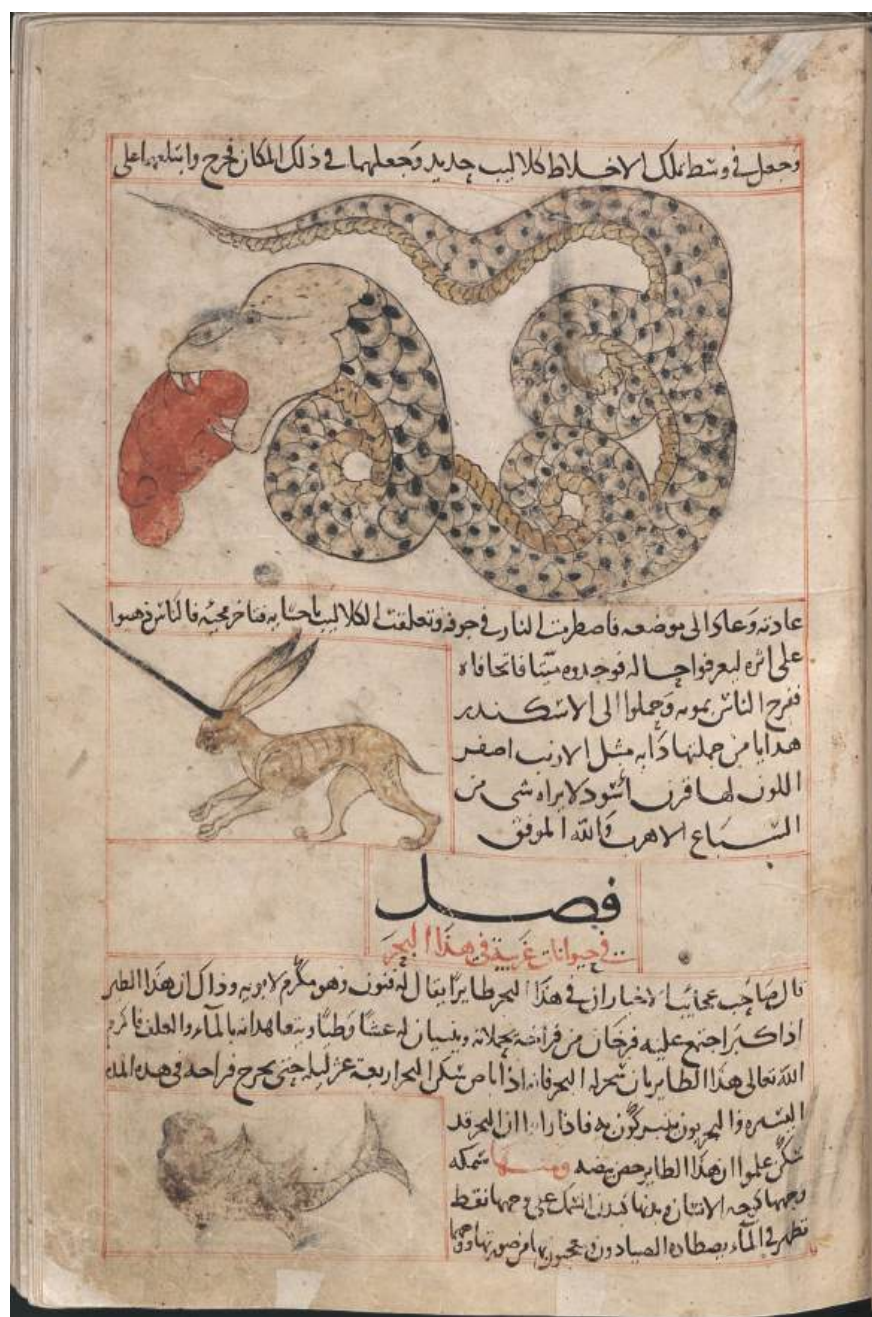 وجعل في وسط تلك الاخلاط كلاليب حديد وجعلهما في ذلك المكان فخرج وابتلعهما على
عادته وعاد الى موضعه فاضطرمت النار في جوفه وتعلقت الكلاليب باحشايه فتاخر مجيه فالناس ذهبوا
على اثره ليعرفوا حاله فوجدوه ميتا فاتحا فاه
ففرح الناس بموته وحملوا الى الاسكندر
هدايا من جملتها دابة مثل الارنب اصفر
اللون لها قرن اسود لا يراه شى من
السباع الا هرب والله الموفق
فصل
في حيوانات غريبة في هذا البحر
قال صاحب عجايب الاخبار ان في هذا البحر طايرا يقال له فنون وهو مكرم لابويه وذاك ان هذا الطير
اذا كبر اجتمع عليه فرخان من فراخه يحملانه ويبنيان له عشا وطيا ويتعاهدانه بالماء والعلف فاكرم
الله تعالى هذا الطاير بان سخر له البحر فانه اذا باض سكن البحر اربعة عشر ليلة حتى يخرج فراخه في هذه المدة
اليسيرة والبحريون يتبركون به فاذا راوا ان البحر قد
سكن علموا ان هذا الطاير حضن بيضه ومنها سمكة
وجهها كوجه الانسان وبدنها كبدن السمك على وجهها نقط
تظهر في الماء يصطاده الصيادون ويتعجبون بها من صورتها ووجهها